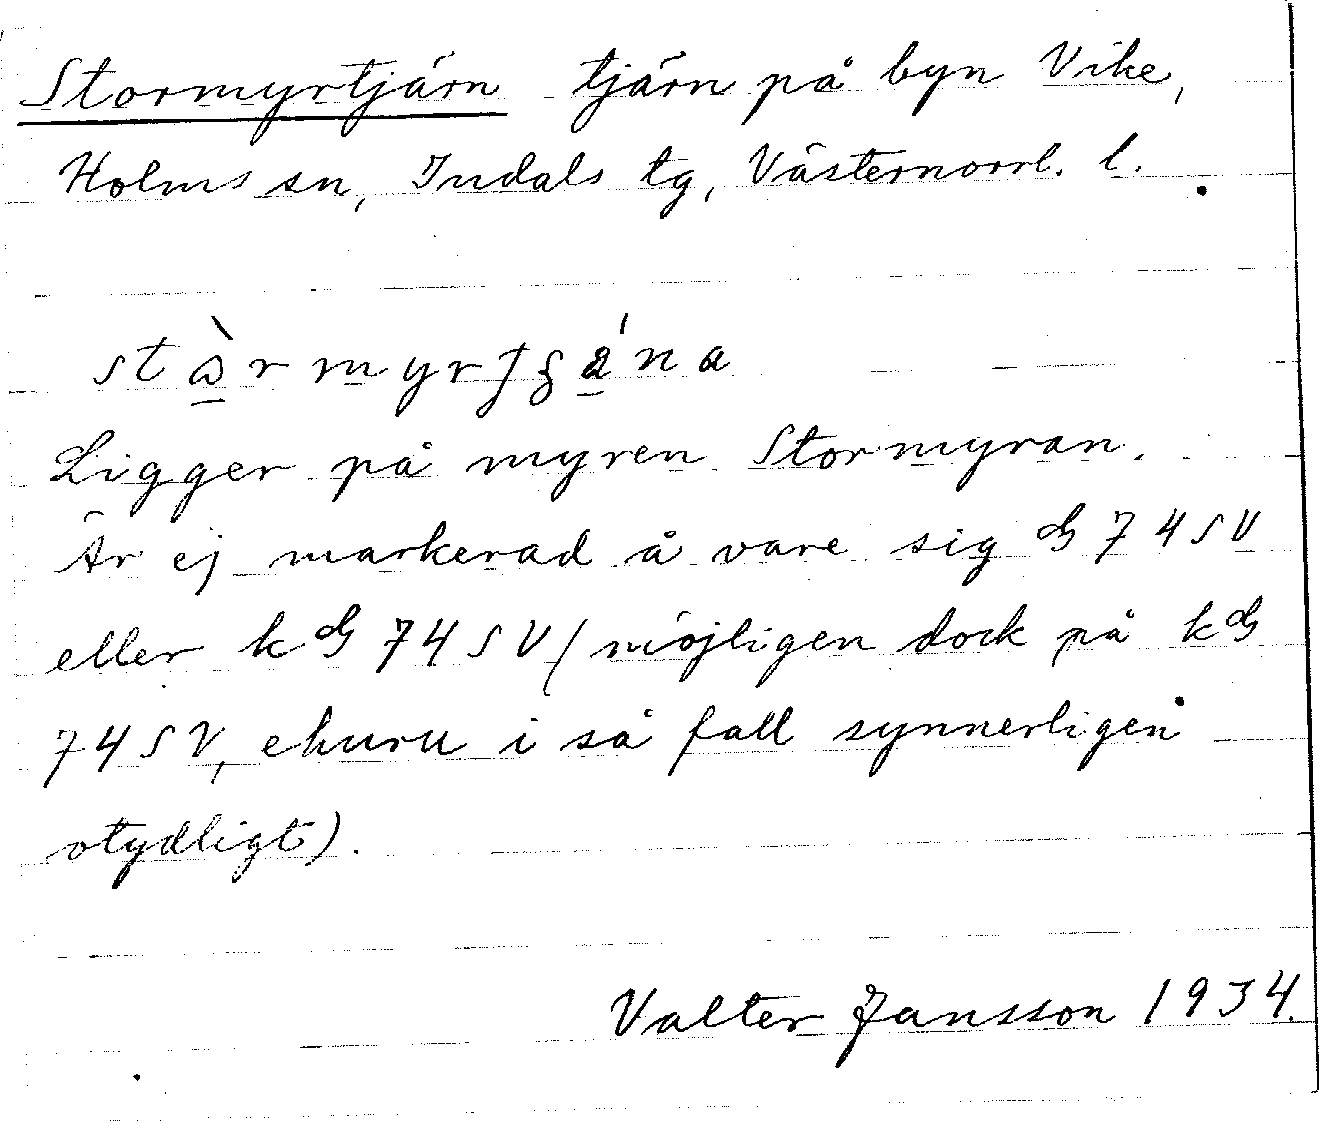 Stormyrtjärn tjärn på byn Vike,
Holms sn, Indals tg, Västernorrl. l.
Ligger på myren Stormyran.
Är ej markerad å vare sig dG 74SV
eller kdG 74SV (möjligen dock på kdG
74SV, ehuru i så fall synnerligen
otydligt).
Valter Jansson 1934.